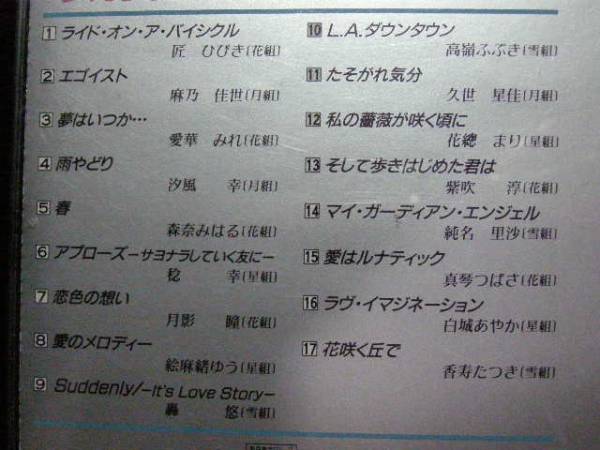 1 ライド・オン・ア・バイシクル
匠 ひびき(花組)
2 エゴイスト
麻乃 佳世(月組)
3 夢はいつか…
愛華 みれ(花組)
4 雨やどり
汐風 幸(月組)
5 春
森奈みはる(花組)
6 アプローズ−サヨナラしていく友に−
稔 幸(星組)
7 恋色の想い
月影 瞳(花組)
8 愛のメロディー
絵麻緒ゆう(星組)
9 Suddenly/−It's Love Story−
轟 悠(雪組)
10 L.A.ダウンタウン
高嶺ふぶき(雪組)
11 たそがれ気分
久世 星佳(月組)
12 私の薔薇が咲く頃に
花總 まり(星組)
13 そして歩きはじめた君は
紫吹 淳(花組)
14 マイ・ガーディアン・エンジェル
純名 里沙(雪組)
15 愛はルナティック
真琴つばさ(花組)
16 ラヴ・イマジネーション
白城あやか(星組)
17 花咲く丘で
香寿たつき(雪組)